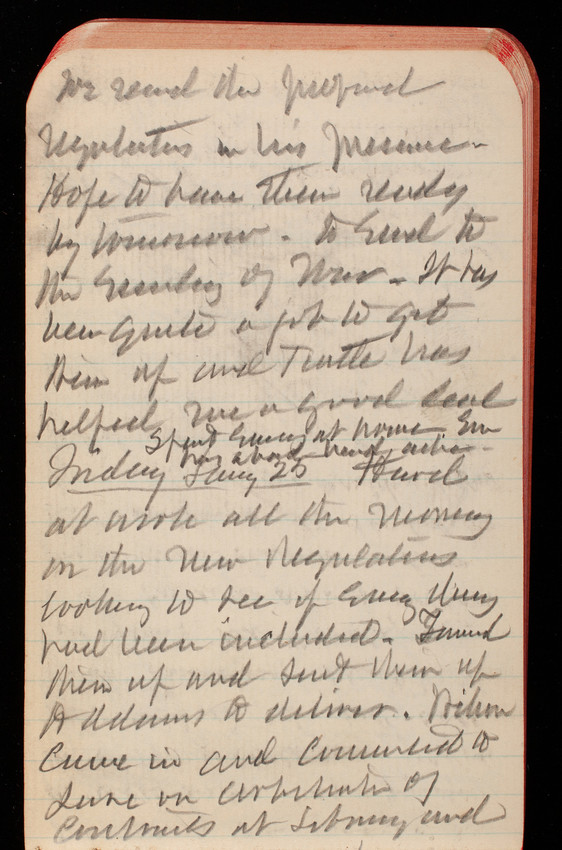 We read the prepared
regulations in his presence -
Hope to have them ready
by tomorrow - to send to
the Secretary of War - It has
been quite a job to get
them up and Tuttle has
helped me a good deal
Spent Eveng at home Em
has a bad head ache -
Friday Jany 25 Hard
at work all the morning
on the new Regulations
looking to see if every thing
had been included - Found
them up and sent them up
to Adams to deliver. Wilson
came in and consented to
serve on arbitration of
contracts at Library and